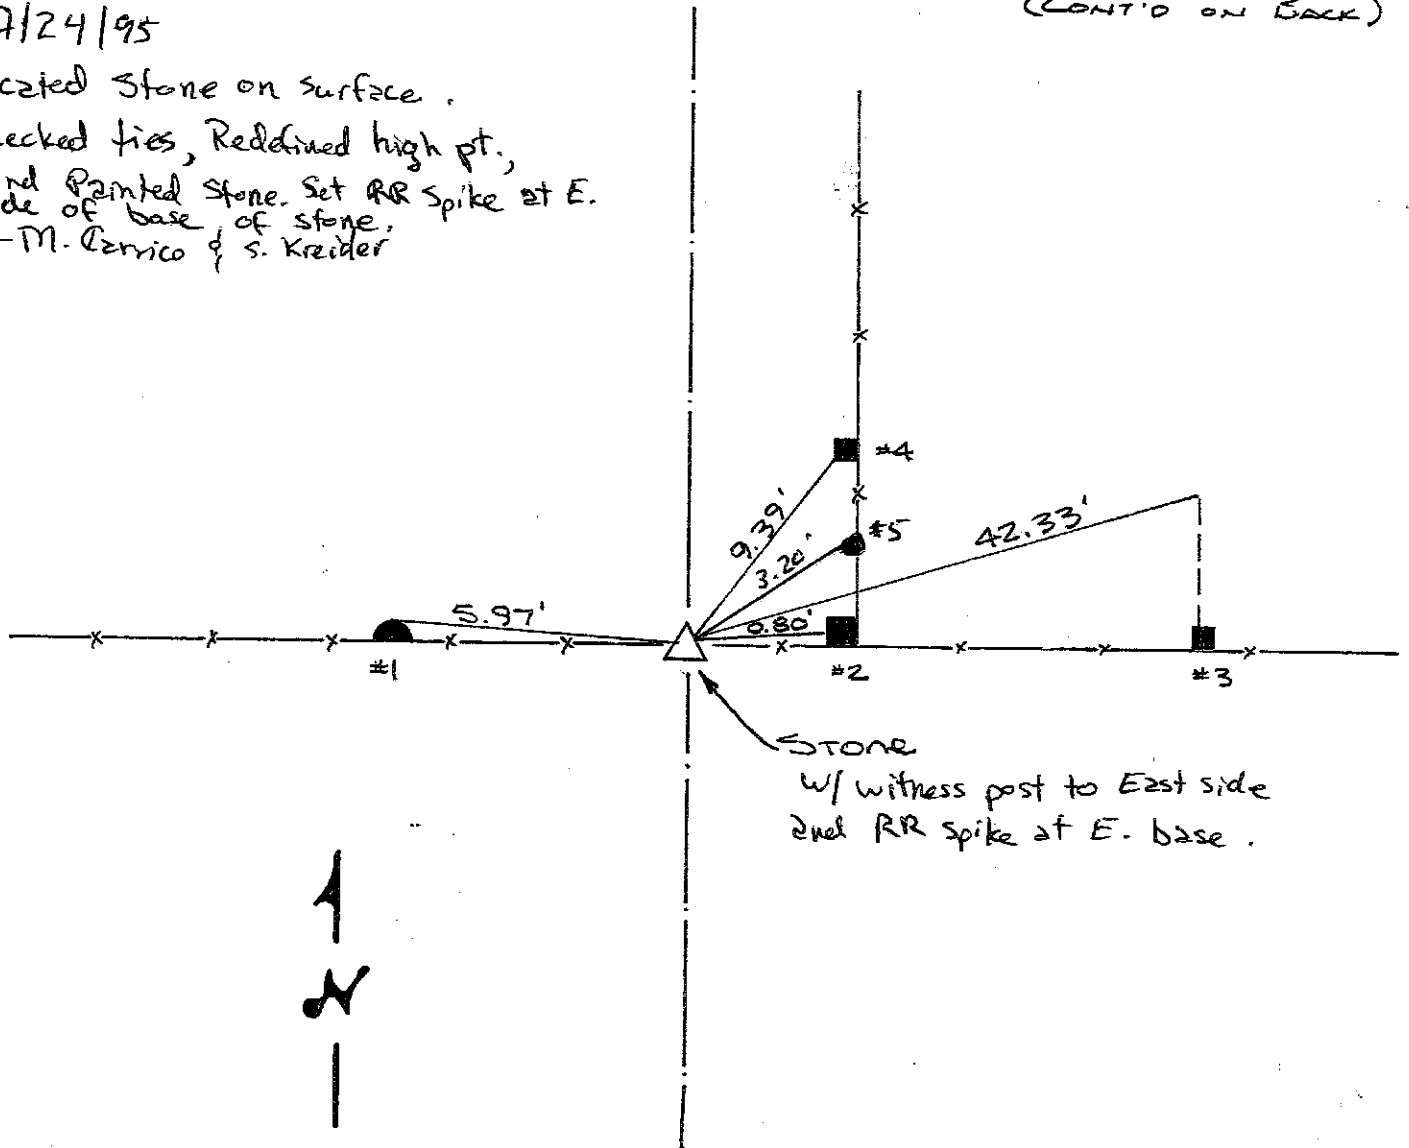 7/24/95
(CONT'D ON BACK)
cated Stone on surface.
ecked ties, Redefined high pt.,
nd Painted Stone. Set RR Spike at E.
de of base of stone.
-M. Carrico & S. Kreider
#4
9.39'
#5
3.20'
42.33'
5.97'
0.80'
#1
#2
#3
STONE
w/ witness post to East side
and RR spike at E. base.
N